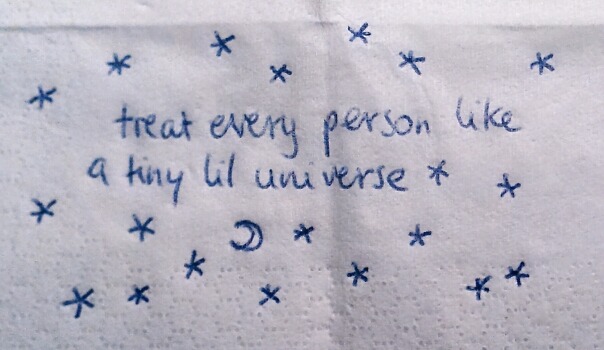 treat every person like
a tiny lil universe